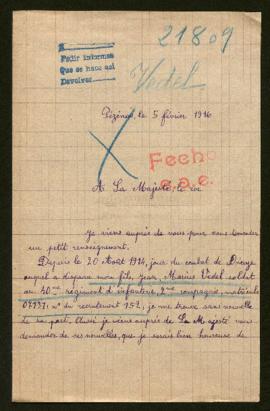 21809
Pedir informes
Que se haga así
Devolver
Vedel
Pézénas, le 5 février 1916
Fecho
A Sa Majesté, le roi
Je viens auprès de vous pour vous demander
un petit renseignement.
Depuis le 20 Août 1914, jour du combat de Dieuze
auquel a disparu mon fils, Jean Marius Vedel soldat
au 40ème régiment d'infanterie, 2ème compagnie, matricule
07737, n° du recrutement 152, je me trouve sans nouvelle
de sa part. Aussi je viens auprès de Sa Majesté vous
demander de ses nouvelles, que je serais bien heureuse de